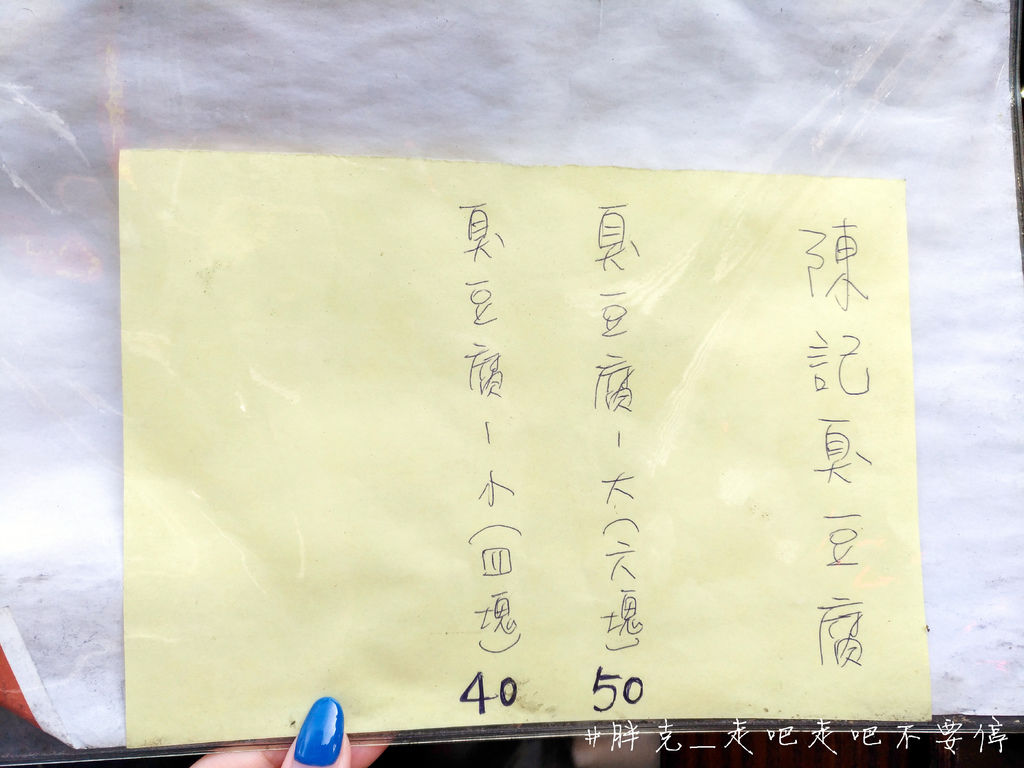 陳記臭豆腐
臭豆腐-大(六塊) 50
臭豆腐-小(四塊) 40
#胖克_走吧走吧不要停